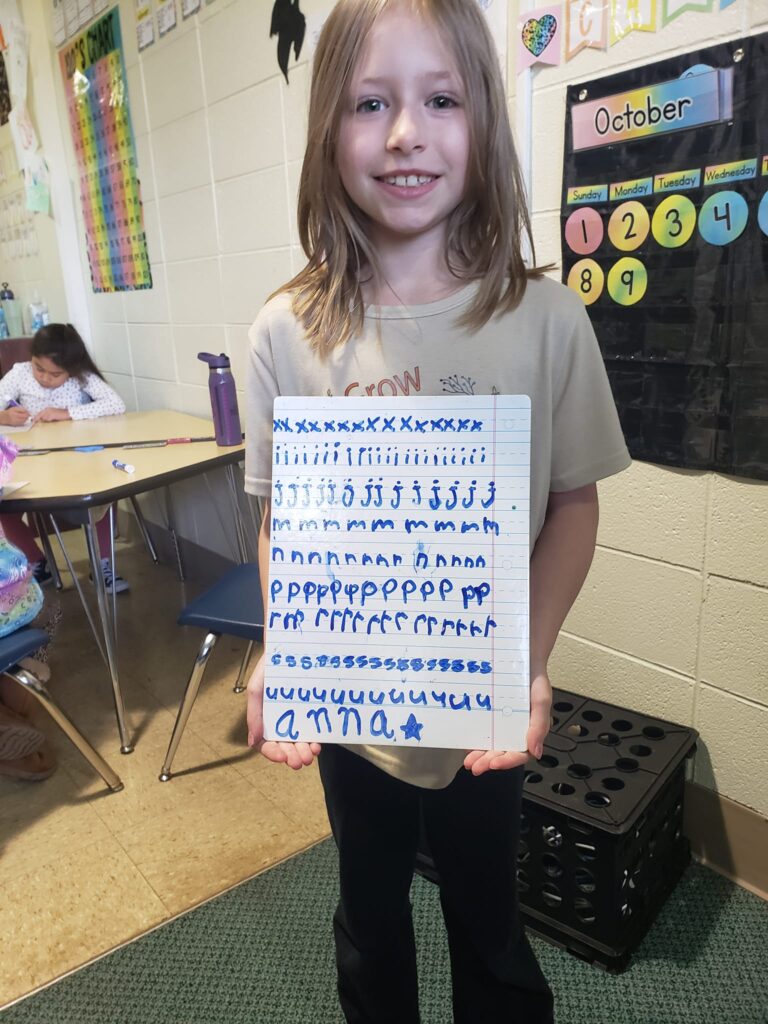 CHART
October
Sunday Monday Tuesday Wednesday
1 2 3 4
8 9
Grow
xx x x x x x x x x x x x x x
i i i i i i i i i i i i i i i i i i i i
j j j j j j j j j j j j j j
m m m m m m m m m
n n n n n n n n n n n n n
p p p p p p p p p p p p pp
r r r r r r r r r r r r r r r
s s s s s s s s s s s s s s s
u u u u u u u u u u u u u
anna